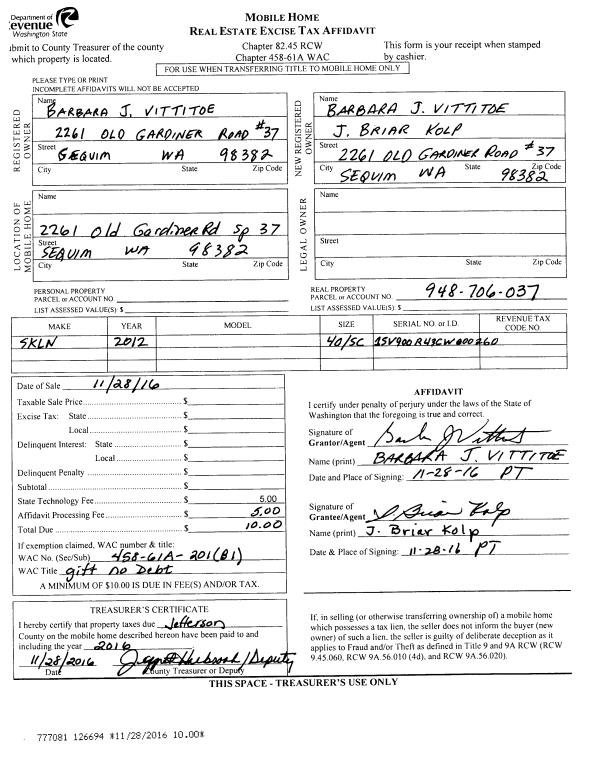 Department of
evenue
Washington State
MOBILE HOME
REAL ESTATE EXCISE TAX AFFIDAVIT
ubmit to County Treasurer of the county
which property is located.
Chapter 82.45 RCW
Chapter 458-61A WAC
This form is your receipt when stamped
by cashier.
FOR USE WHEN TRANSFERRING TITLE TO MOBILE HOME ONLY
PLEASE TYPE OR PRINT
INCOMPLETE AFFIDAVITS WILL NOT BE ACCEPTED
REGISTERED
OWNER
Name
BARBARA J. VITTITOE
2261 OLD GARDINER ROAD #37
Street
SEQUIM WA 98382
City State Zip Code
NEW REGISTERED
OWNER
Name
BARBARA J. VITTITOE
J. BRIAR KOLP
Street
2261 OLD GARDINER ROAD #37
SEQUIM WA 98382
City State Zip Code
LOCATION OF
MOBILE HOME
Name
2261 Old Gardiner Rd Sp 37
Street
SEQUIM WA 98382
City State Zip Code
LEGAL OWNER
Name
Street
City State Zip Code
PERSONAL PROPERTY
PARCEL or ACCOUNT NO.
LIST ASSESSED VALUE(S) $
REAL PROPERTY
PARCEL or ACCOUNT NO. 948-706-037
LIST ASSESSED VALUE(S) $
MAKE YEAR MODEL SIZE SERIAL NO. or I.D. REVENUE TAX
CODE NO.
SKLN 2012 40/SC 1SV900R43CW000260
Date of Sale 11/28/16
Taxable Sale Price $
Excise Tax: State $
Local $
Delinquent Interest: State $
Local $
Delinquent Penalty $
Subtotal $
State Technology Fee $ 5.00
Affidavit Processing Fee $ 5.00
Total Due $ 10.00
If exemption claimed, WAC number & title:
WAC No. (Sec/Sub) 458-61A-201(B1)
WAC Title gift no Debt
A MINIMUM OF $10.00 IS DUE IN FEE(S) AND/OR TAX.
AFFIDAVIT
I certify under penalty of perjury under the laws of the State of
Washington that the foregoing is true and correct.
Signature of
Grantor/Agent
Name (print) BARBARA J. VITTITOE
Date and Place of Signing: 11-28-16 PT
Signature of
Grantee/Agent J Briar Kolp
Name (print) J. Briar Kolp
Date & Place of Signing: 11-28-16 PT
TREASURER'S CERTIFICATE
I hereby certify that property taxes due Jefferson
County on the mobile home described hereon have been paid to and
including the year 2016
11/28/2016 /Deputy
Date County Treasurer or Deputy
If, in selling (or otherwise transferring ownership of) a mobile home
which possesses a tax lien, the seller does not inform the buyer (new
owner) of such a lien, the seller is guilty of deliberate deception as it
applies to Fraud and/or Theft as defined in Title 9 and 9A RCW (RCW
9.45.060, RCW 9A.56.010 (4d), and RCW 9A.56.020).
THIS SPACE - TREASURER'S USE ONLY
777081 126694 *11/28/2016 10.00*